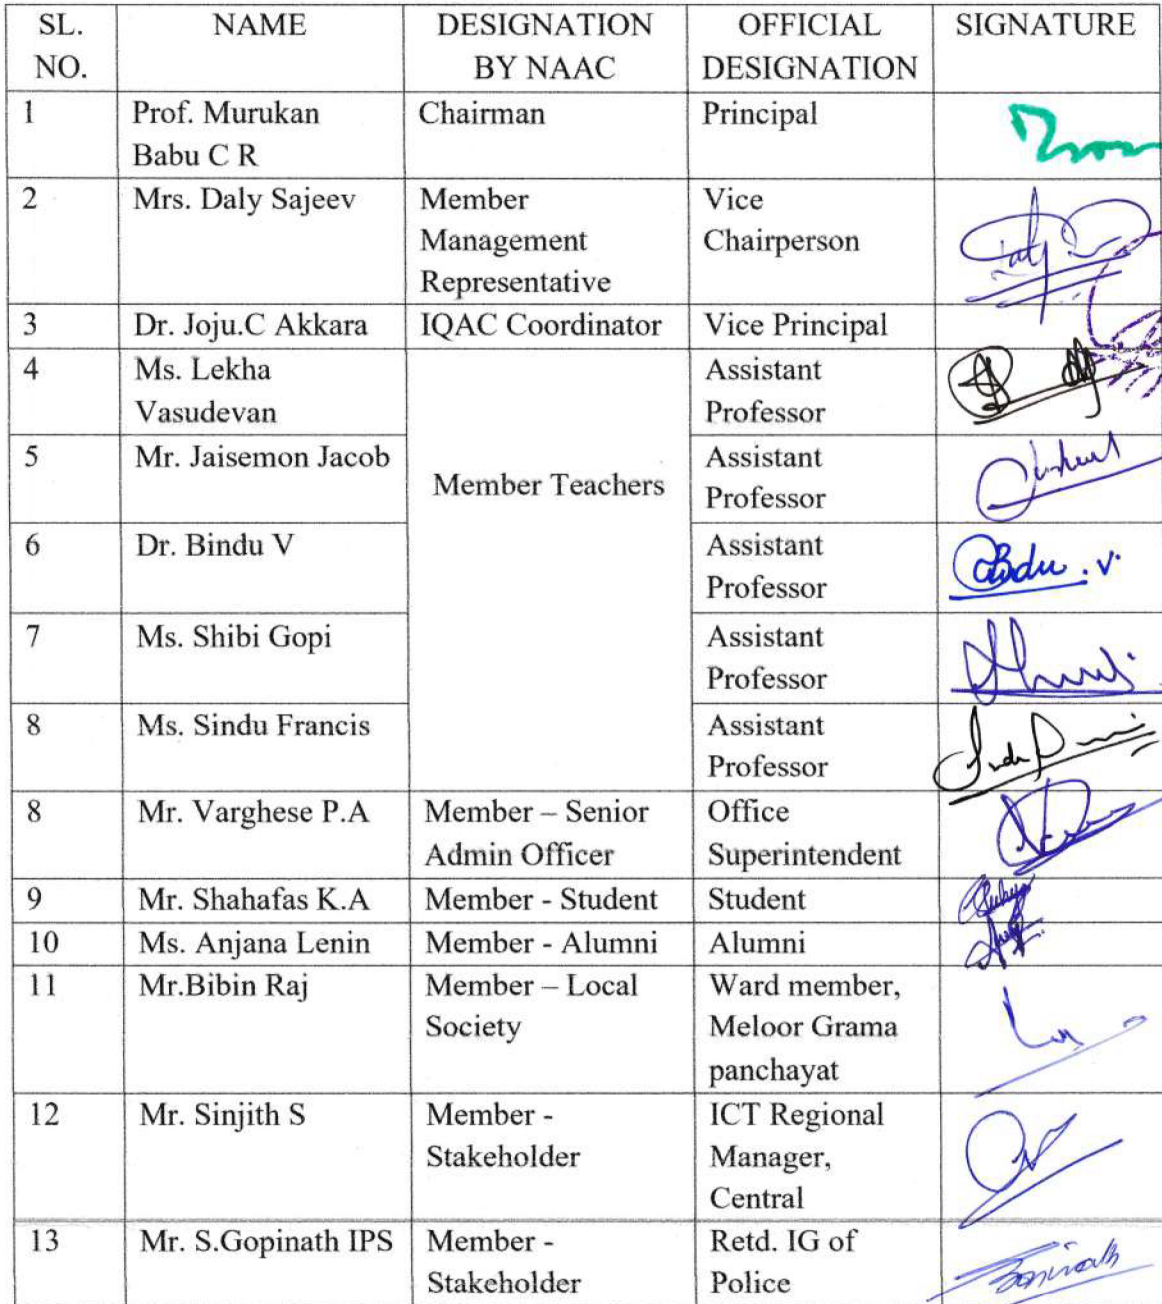 SL. NO. NAME DESIGNATION BY NAAC OFFICIAL DESIGNATION SIGNATURE
1 Prof. Murukan Babu C R Chairman Principal
2 Mrs. Daly Sajeev Member Management Representative Vice Chairperson
3 Dr. Joju.C Akkara IQAC Coordinator Vice Principal
4 Ms. Lekha Vasudevan Member Teachers Assistant Professor
5 Mr. Jaisemon Jacob Assistant Professor
6 Dr. Bindu V Assistant Professor Bindu . V.
7 Ms. Shibi Gopi Assistant Professor
8 Ms. Sindu Francis Assistant Professor
8 Mr. Varghese P.A Member – Senior Admin Officer Office Superintendent
9 Mr. Shahafas K.A Member - Student Student
10 Ms. Anjana Lenin Member - Alumni Alumni
11 Mr.Bibin Raj Member – Local Society Ward member, Meloor Grama panchayat
12 Mr. Sinjith S Member - Stakeholder ICT Regional Manager, Central
13 Mr. S.Gopinath IPS Member - Stakeholder Retd. IG of Police